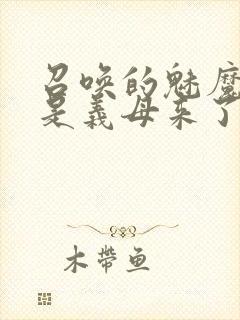 召唤的魅魔
是義母来了
木帶鱼